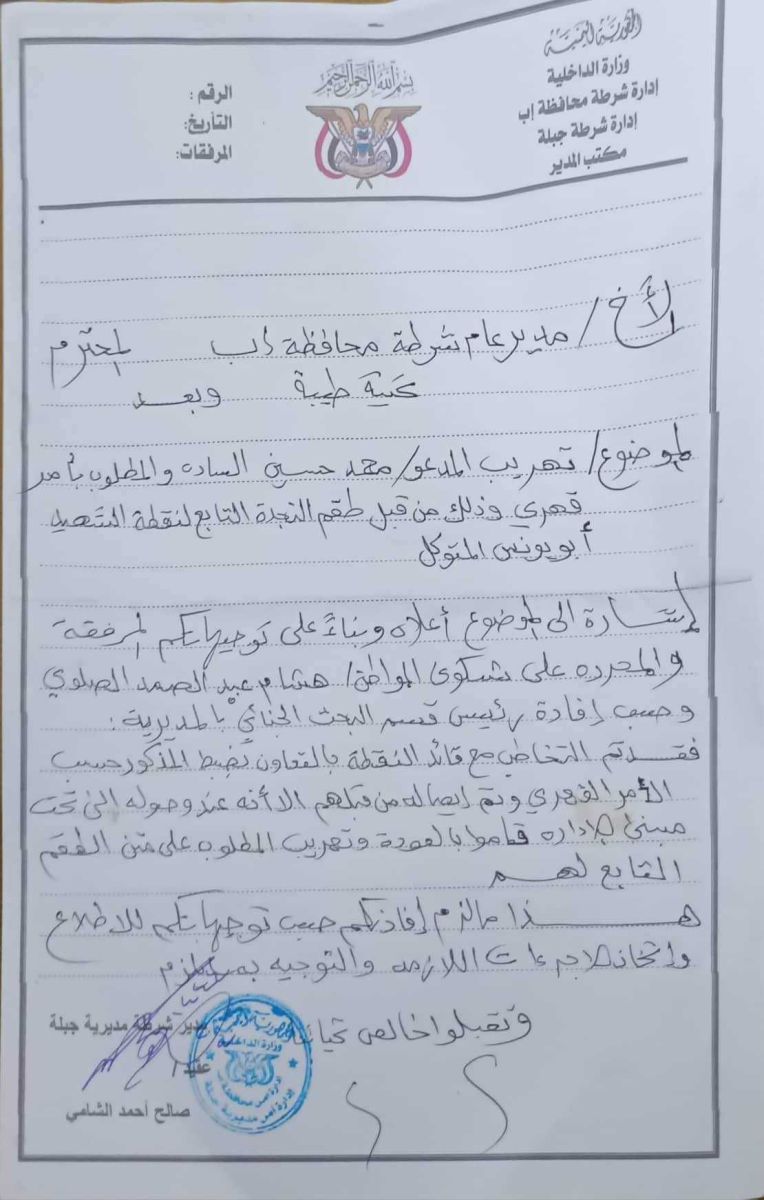 الجمهورية اليمنية
وزارة الداخلية
إدارة شرطة محافظة إب
إدارة شرطة جبلة
مكتب المدير
بسم الله الرحمن الرحيم
الرقم :
التأريخ:
المرفقات:
الأخ / مدير عام شرطة محافظة إب المحترم
تحية طيبة وبعد
الموضوع/ تهريب المدعو/ محمد حسين الساده والمطلوب بأمر
قهري وذلك من قبل طقم النجدة التابع لنقطة الشهيد
أبو يونس المتوكل
إشارة الى الموضوع أعلاه وبناءً على توجيهاتكم المرفقة
والمحرره على شكوى المواطن/ هشام عبد الصمد الصلوي
وحسب إفادة رئيس قسم البحث الجنائي بالمديرية :
فقد تم التخاطب مع قائد النقطة بالتعاون بضبط المذكور حسب
الأمر القهري وتم إيصاله من قبلهم الا أنه عند وصوله الى تحت
مبنى الاداره قاموا بالعودة وتهريب المطلوب على متن الطقم
التابع لهم
هذا مالزم إفادتكم حسب توجيهاتكم للاطلاع
واتخاذ الاجراءات اللازمه والتوجيه بما يلزم
وتقبلوا خالص تحياتنا
مدير شرطة مديرية جبلة
عقيد /
صالح أحمد الشامي
الجمهورية اليمنية
وزارة الداخلية
إدارة امن محافظة إب
إدارة امن مديرية جبلة